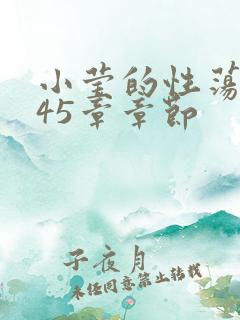 小莹的性荡
45章章节
子夜月
未经同意禁止转载